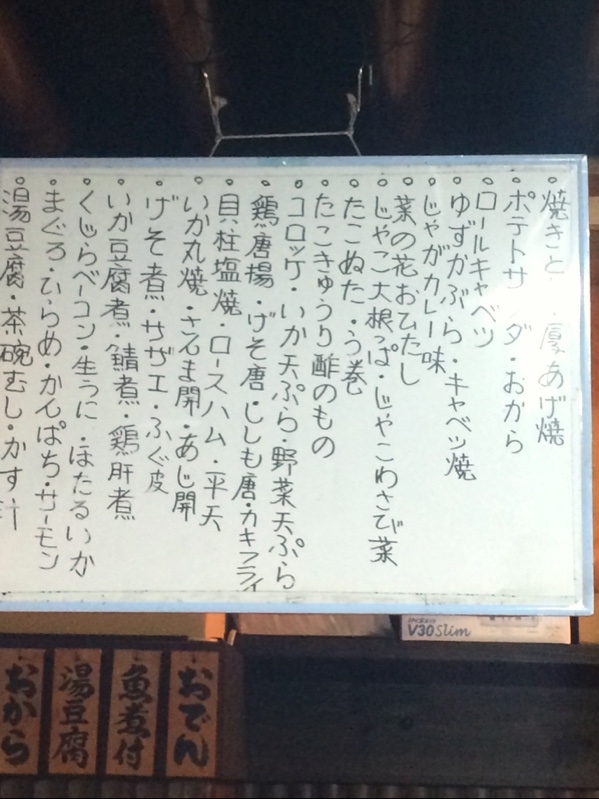 焼きと・厚あげ焼
ポテトサ ダ・おから
ロールキャベツ
ゆずかぶら・キャベツ焼
じゃがカレー味
菜の花おひたし
じゃこ大根っぱ・じゃこわさび菜
たこぬた・う巻
たこきゅうり酢のもの
コロッケ・いか天ぷら・野菜天ぷら
鶏唐揚・げそ唐・ししも唐・カキフライ
貝柱塩焼・ロースハム・平天
いか丸焼・さんま開・あじ開
げそ煮・サザエ・ふぐ皮
いか豆腐煮・鯖煮・鶏肝煮
くじらベーコン・生うに・ほたるいか
まぐろ・ひらめ・かんぱち・サーモン
湯豆腐・茶碗むし・かす汁
V30 Slim
おでん
魚煮付
湯豆腐
おから